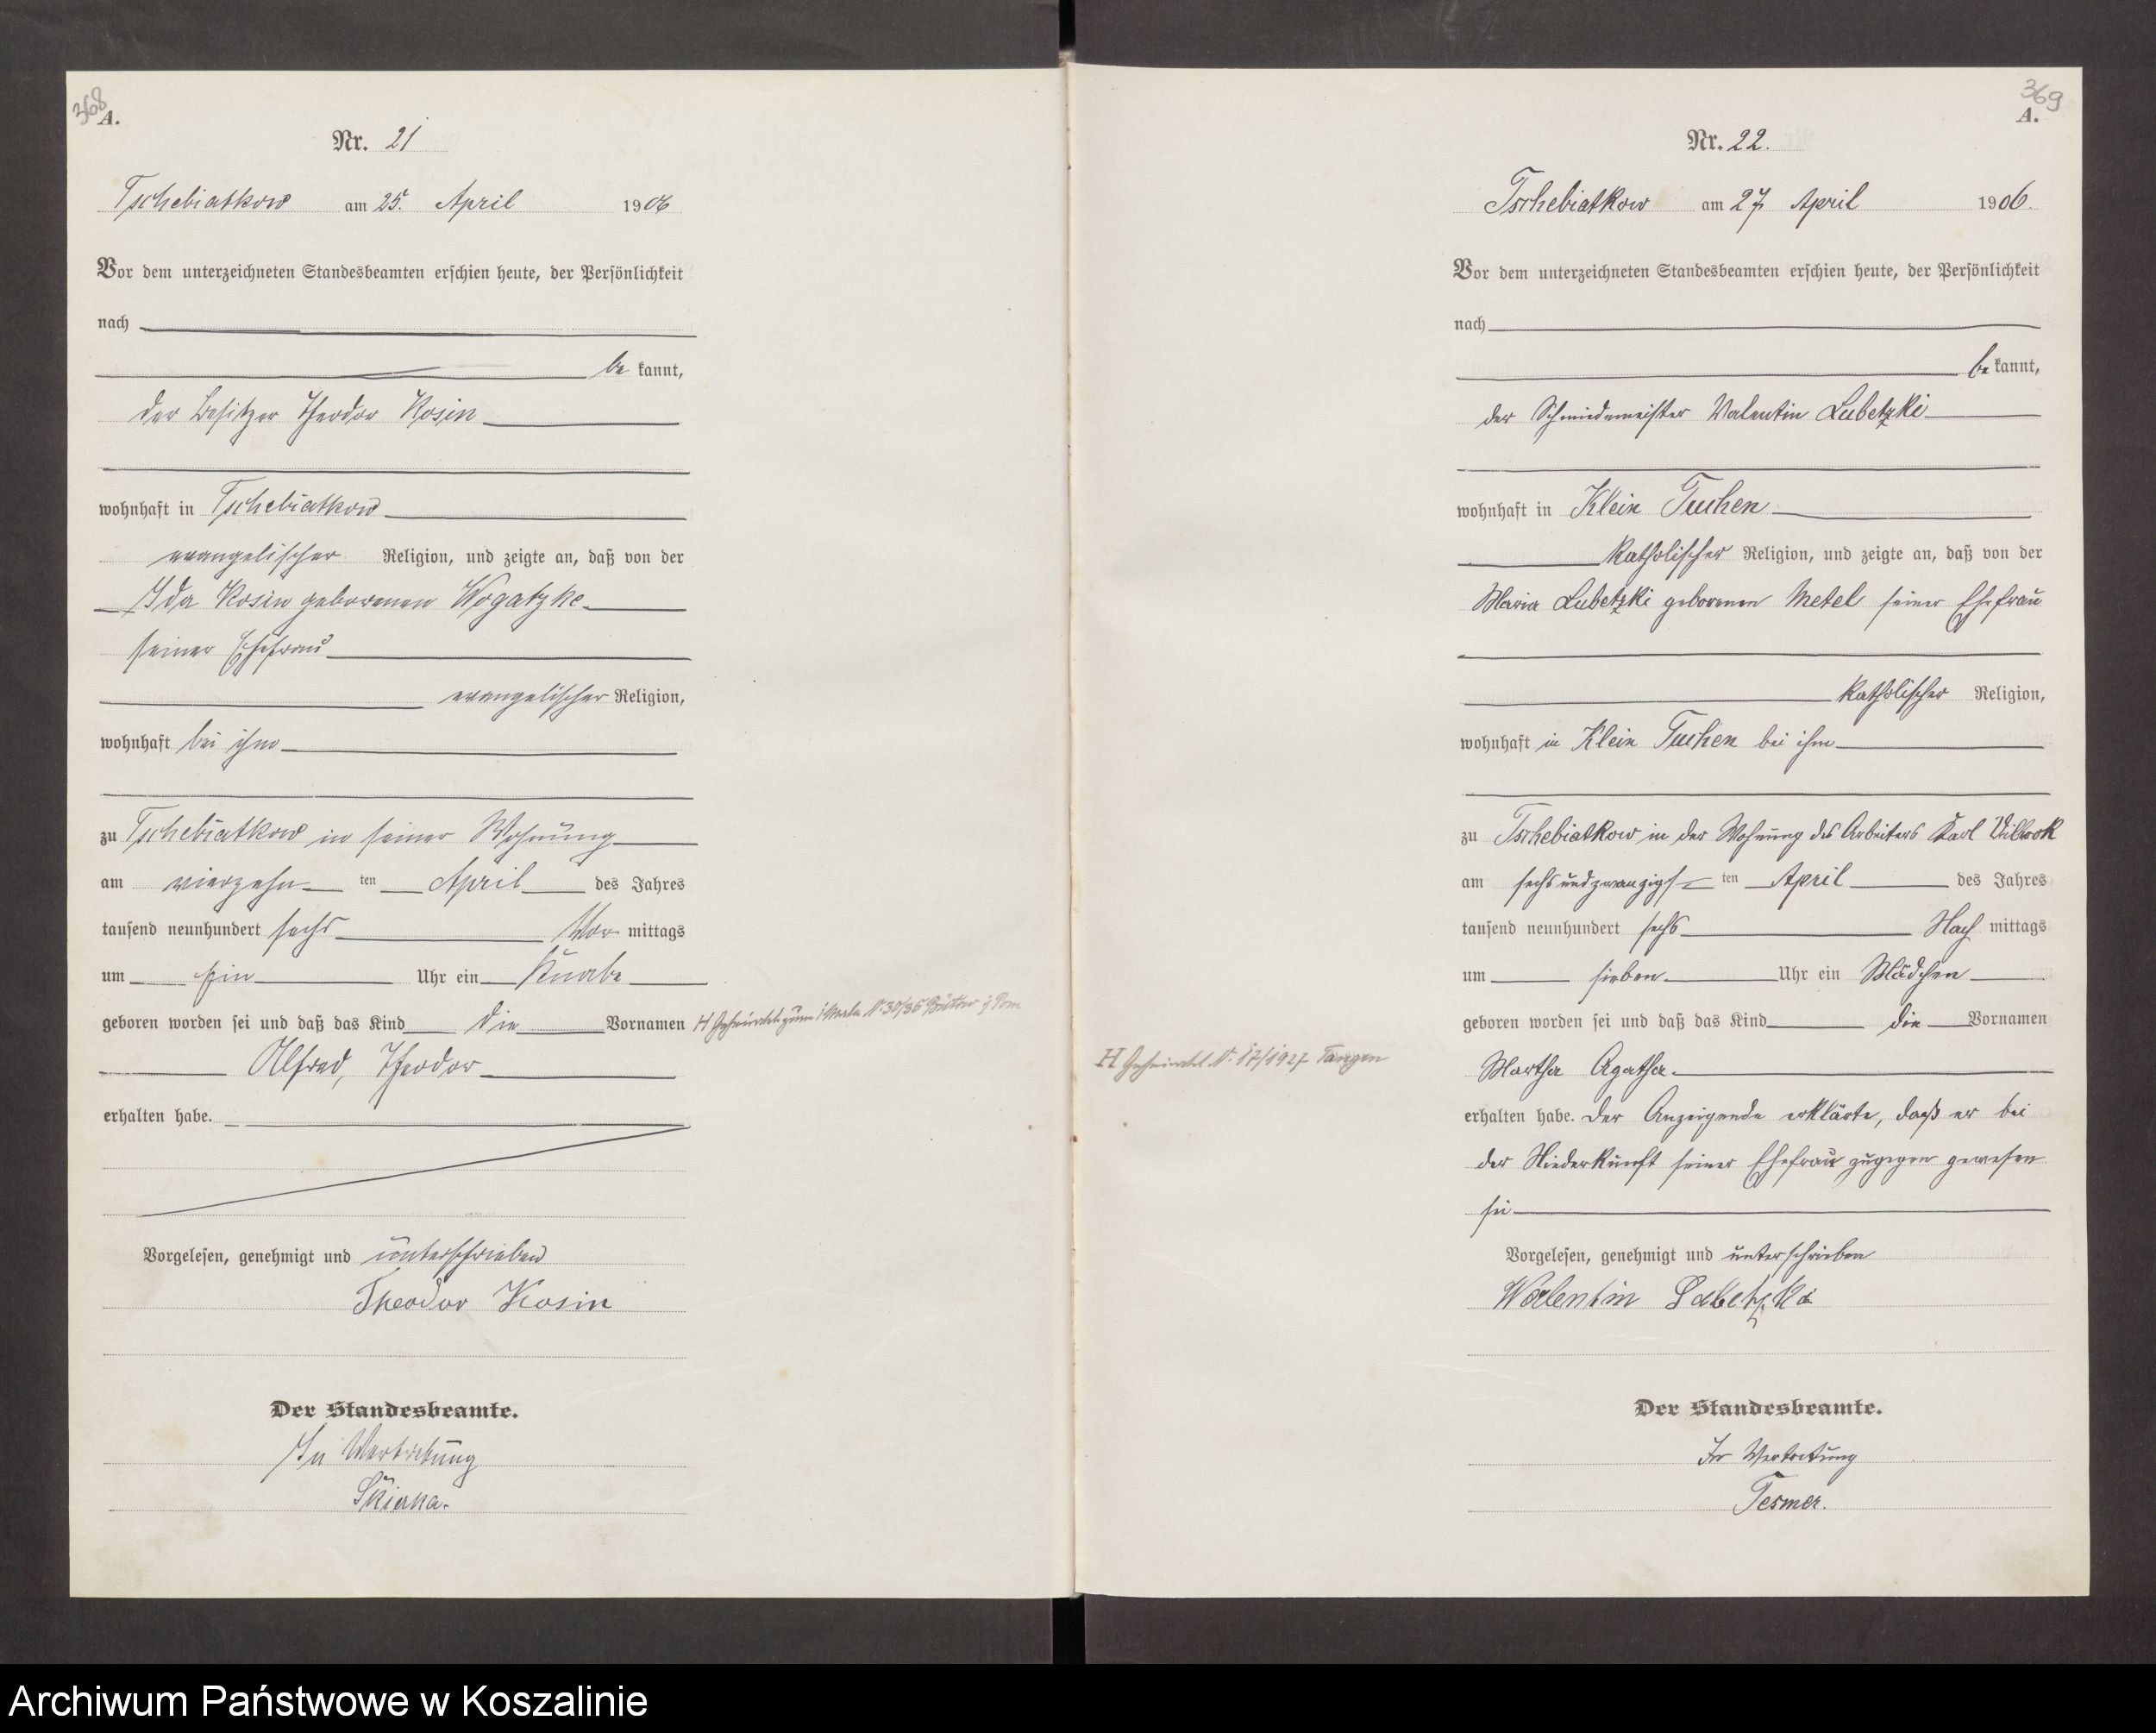 368
A.
Nr. 21
Tschebiatkow am 25. April 1906
Vor dem unterzeichneten Standesbeamten erschien heute, der Persönlichkeit
nach
be kannt,
der Besitzer Theodor Kosin
wohnhaft in Tschebiatkow
evangelischer Religion, und zeigte an, daß von der
Ida Kosin geborenen Wogatzke
seiner Ehefrau
evangelischer Religion,
wohnhaft bei ihm
zu Tschebiatkow in seiner Wohnung
am vierzehn ten April des Jahres
tausend neunhundert sechs Vor mittags
um ein Uhr ein Knabe
geboren worden sei und daß das Kind die Vornamen
H Geheiratet zum 1. Male Nr 30/36 Bütow i/ Pom
Alfred, Theodor
erhalten habe.
Vorgelesen, genehmigt und unterschrieben
Theodor Kosin
Der Standesbeamte.
In Vertretung
369
A.
Nr. 22.
Tschebiatkow am 27 April 1906.
Vor dem unterzeichneten Standesbeamten erschien heute, der Persönlichkeit
nach
be kannt,
der Schmiedemeister Valentin Lubetzki
wohnhaft in Klein Tuchen
katholischer Religion, und zeigte an, daß von der
Maria Lubetzki geborenen Metel seiner Ehefrau
katholischer Religion,
wohnhaft in Klein Tuchen bei ihm
zu Tschebiatkow in der Wohnung des Arbeiters Karl
am sechsundzwanzigs ten April des Jahres
tausend neunhundert sechs Nach mittags
um sieben Uhr ein Mädchen
geboren worden sei und daß das Kind die Vornamen
H Geheiratet Nr. 17/1927 Tangen
Martha Agatha
erhalten habe. Der Anzeigende erklärte, daß er bei
der Niederkunft seiner Ehefrau zugegen gewesen
sei
Vorgelesen, genehmigt und unterschrieben
Walentin Lubetzki
Der Standesbeamte.
In Vertretung
Tesmer.
Archiwum Państwowe w Koszalinie